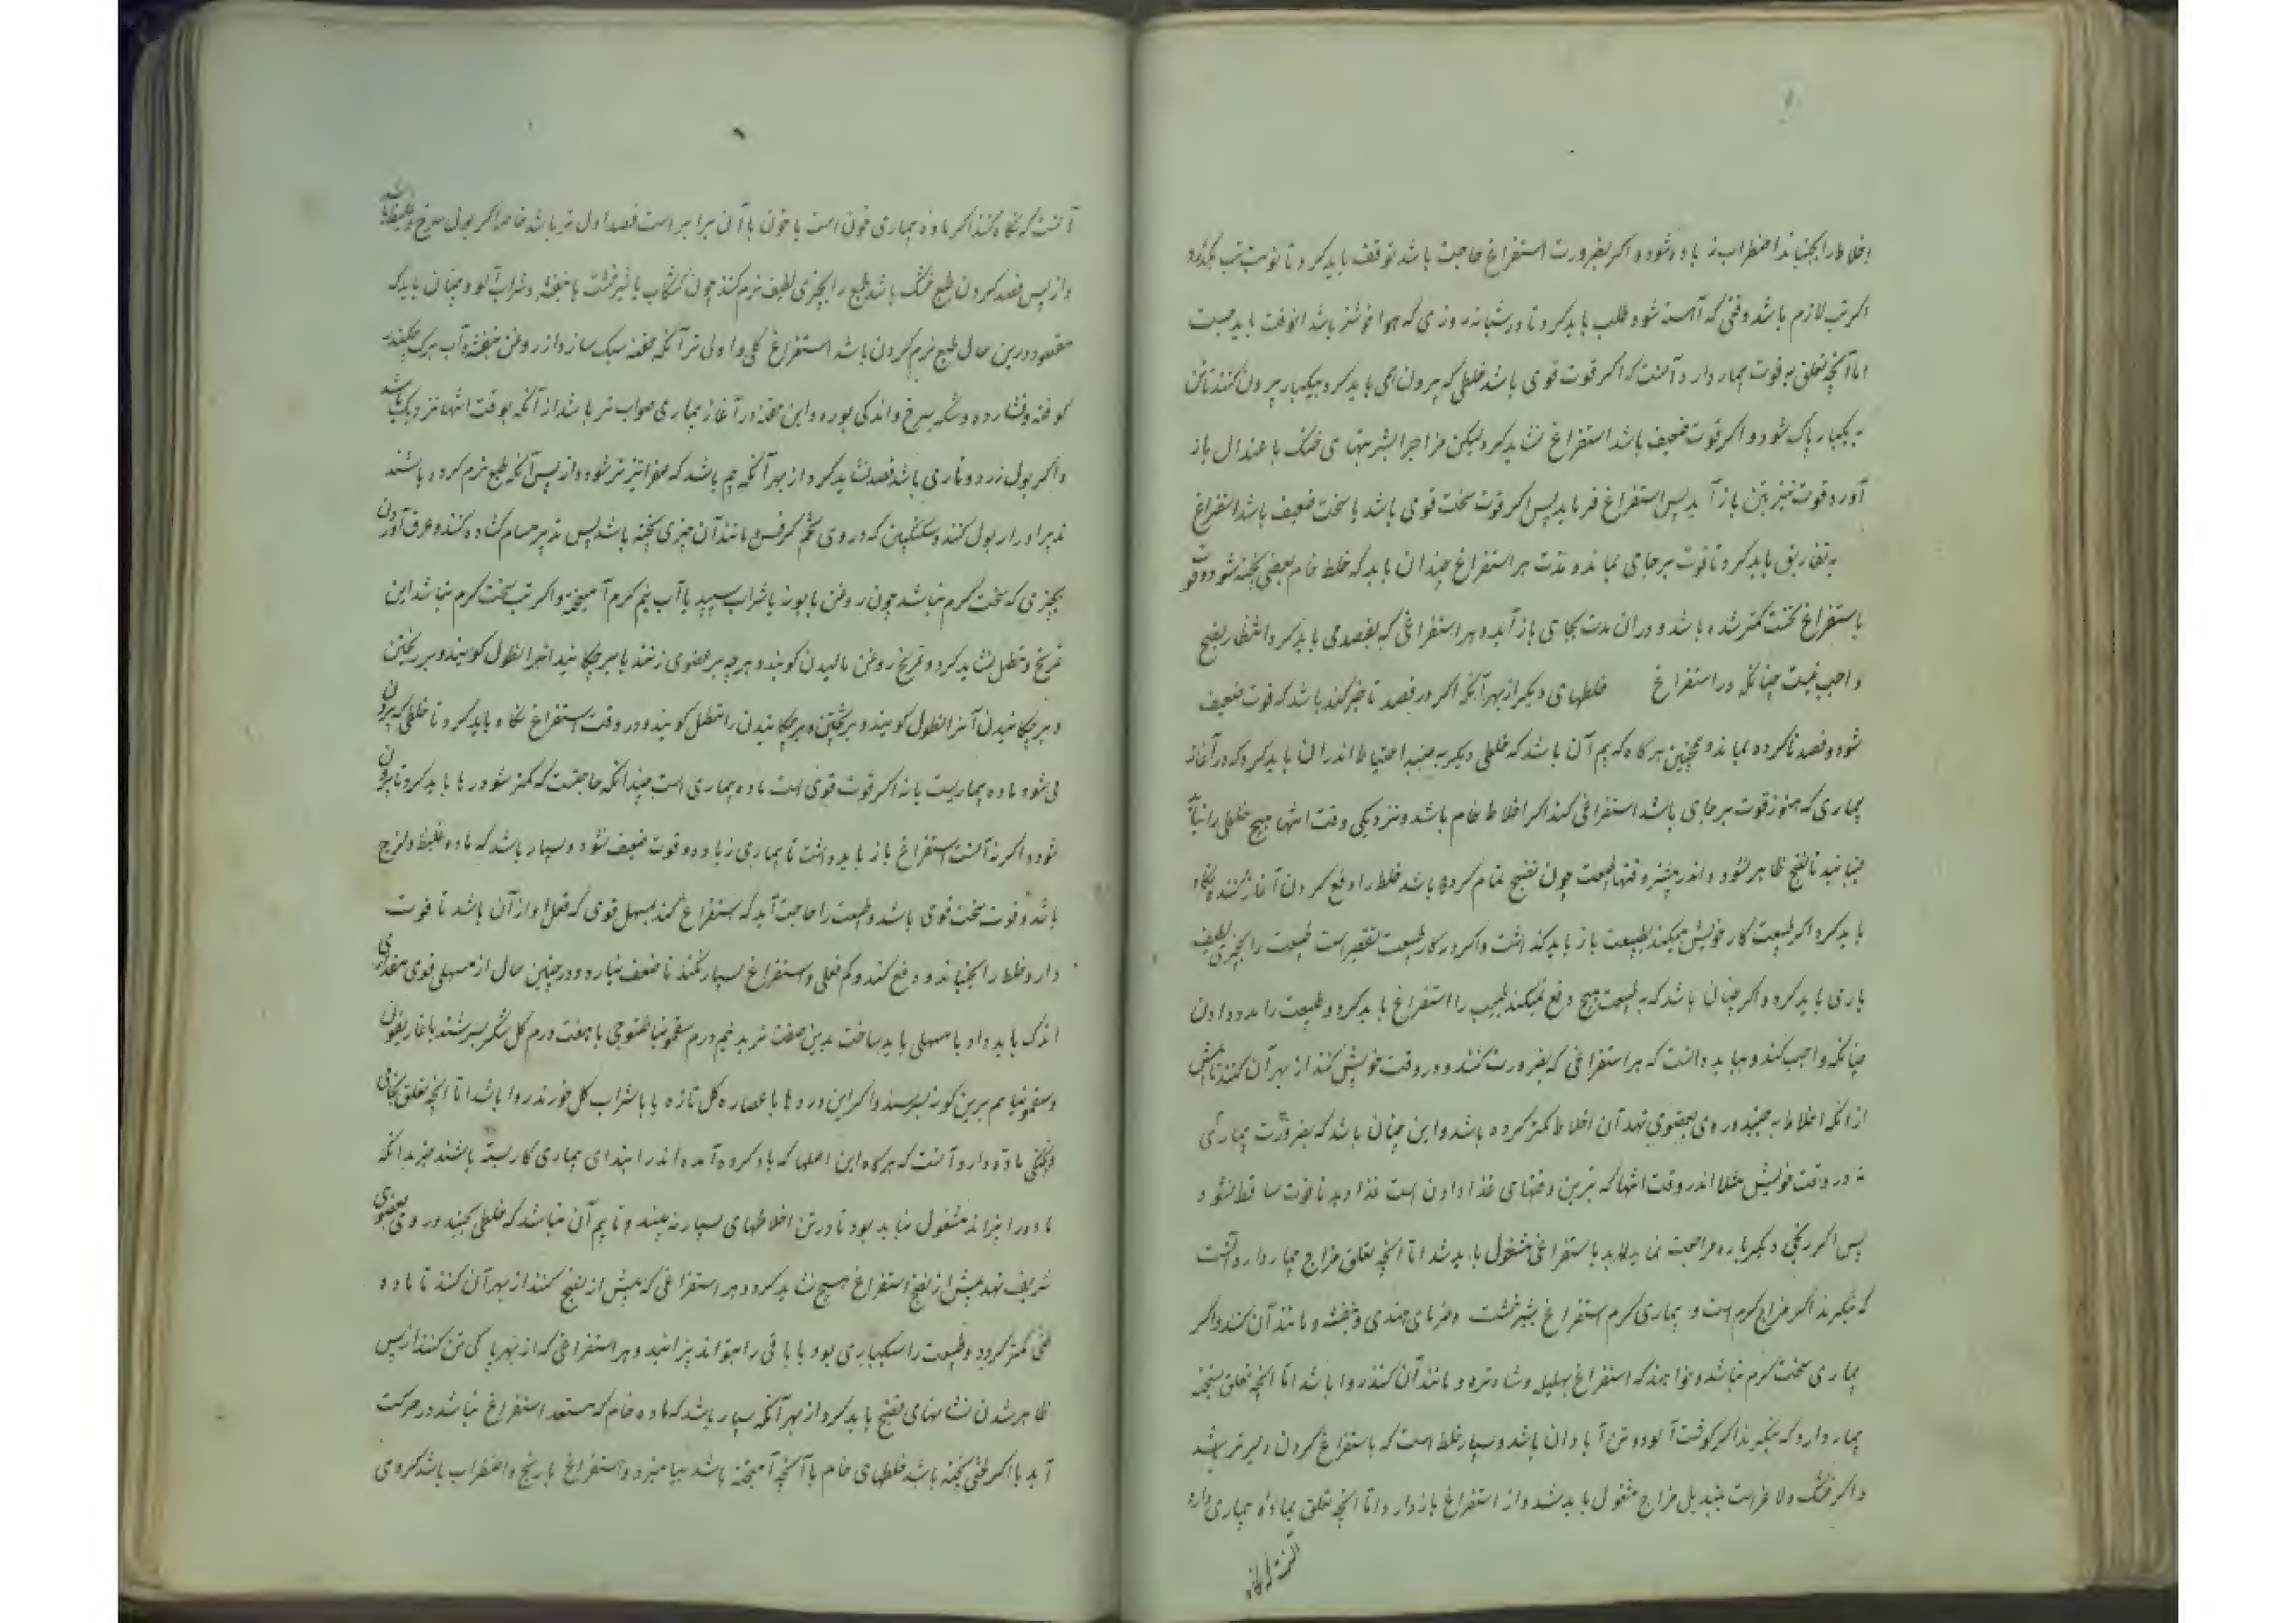 اخلاط را بجنباند اضطراب زیاده شود و اگر بضرورت استفراغ حاجت باشد توقف باید کرد تا نوبت تب بگذرد
اگر تب لازم باشد وقتی که آهسته شود طلب باید کرد تا در شبانه روزی که هوا خوشتر باشد آنوقت باید جست
اما آنچه تعلق به قوت بیمار دارد آنست که اگر قوت قوی باشد خلطی که بیرون می باید کرد بیکبار بیرون کنند تا تن
به یکبار پاک شود و اگر قوت ضعیف باشد استفراغ نشاید کرد لیکن مزاج را بشربتهای خنک باعتدال باز
آورد و قوت نیز بتن باز آید پس استفراغ فرماید پس اگر قوت سخت قوی باشد یا سخت ضعیف باشد استفراغ
به تفاریق باید کرد تا قوت بر جای بماند و مدت هر استفراغ چندان باید که خلط خام بعضی پخته شود و قوت
باستفراغ نخست کمتر شده باشد و در آن مدت بجای باز آید و هر استفراغی که بفصدی باید کرد انتظار نضج
واجب نیست چنانکه در استفراغ خلطهای دیگر از بهر آنکه اگر در فصد تاخیر کند باشد که قوت ضعیف
شود و فصد ناکرده بماند و همچنین هرگاه که بیم آن باشد که خلطی دیگر به جنبد احتیاط اندر آن باید کرد که در آغاز
بیماری که هنوز قوت بر جای باشد استفراغی کند اگر اخلاط خام باشد و نزدیکی وقت انتها هیچ خلطی را نباید
جنبانید تا نضج ظاهر شود و اندر بیشتر وقتها طبیعت چون نضج تمام کرده باشد خلط را دفع کردن آغاز کند نگاه
باید کرد اگر طبیعت کار خویش میکند بطبیعت باز باید گذاشت و اگر در کار طبیعت تقصیر است طبیعت را بچیزی لطیف
یاری باید کرد و اگر چنان باشد که به طبیعت هیچ دفع نمیکند طبیب را استفراغ باید کرد و طبیعت را مدد دادن
چنانکه واجب کند و بباید دانست که هر استفراغی که بضرورت کنند و در وقت خویش کنند از بهر آن کنند تا پیش
از آنکه اخلاط به جنبد و روی بعضوی نهد آن اخلاط کمتر کرده باشد و این چنان باشد که بضرورت بیماری
نه در وقت خویش مثلا اندر وقت انتها که بترین وقتهای غذا دادن است غذا دهد تا قوت ساقط نشود
پس اگر رنجی دیگر باره مراجعت نماید لابد باستفراغی مشغول باید شد اما آنچه تعلق مزاج بیمار دارد آنست
که بنگرند اگر مزاج گرم است و بیماری گرم استفراغ بشیرخشت و خرمای هندی و بنفشه و مانند آن کنند و اگر
بیماری سخت گرم نباشد و خواهند که استفراغ بهلیله و شاه تره و مانند آن کنند روا باشد اما آنچه تعلق بسحنه
بیمار دارد که بنگرند اگر گوشت آلود و تن آبادان باشد و بسیار خلط است که باستفراغ کردن دلیرتر باشد
و اگر خشک و لاغر است بتبدیل مزاج مشغول باید شد و از استفراغ باز دارد و اما آنچه تعلق بماده بیماری دارد
آنست که نگاه
آنست که نگاه کنند اگر ماده بیماری خون است یا خون با آن برابر است فصد اولی تر باشد خاصه اگر بول سرخ و غلیظ باشد
و از پس فصد کردن طبع خشک باشد طبع را بچیزی لطیف نرم کند چون کشکاب با شیرخشت یا بنفشه و شراب آلو و چنان باید که
مقصود درین حال طبع نرم کردن باشد استفراغ کلی و اولی تر آنکه حقنه سبک سازد از روغن بنفشه و آب برگ چغندر
کوفته و فشارده و شکر سرخ و اندکی بوره و این حقنه در آغاز بیماری صواب تر باشد از آنکه بوقت انتها نزدیک باشد
و اگر بول زرد و ناری باشد فصد نشاید کرد از بهر آنکه بیم باشد که صفرا تیزتر شود و از پس آنکه طبع نرم کرده باشند
تدبیر ادرار بول کنند و سکنگبین که در وی تخم کرفس و مانند آن چیزی پخته باشد پس تدبیر مسام گشاده کنند و عرق آوردن
بچیزی که سخت گرم نباشد چون روغن بابونه یا شراب سپید با آب نیم گرم آمیخته و اگر تب سخت گرم نباشد این
تمریخ و تنطیل نشاید کرد و تمریخ روغن مالیدن گویند و هر چه بر عضوی زنند یا بر چکانند آنرا نطول گویند و بر ریختن
و بر چکانیدن آنرا نطول گویند و بر ریختن و بر چکانیدن را تنطیل گویند و در وقت استفراغ نگاه باید کرد تا خلطی که بیرون
می شود ماده بیماریست یا نه اگر قوت قوی است ماده بیماری است چندانکه حاجتست که کمتر شود رها باید کرد تا بیرون
شود و اگر نه آنست استفراغ باز باید داشت تا بیماری زیاده و قوت ضعیف نشود و بسیار باشد که ماده غلیظ و لزج
باشد و قوت سخت قوی باشد و طبیعت را حاجت آید که استفراغ کند بمسهل قوی که فعل او از آن باشد تا قوت
دارو خلط را بجنباند و دفع کند و کم فعلی و استفراغ بسیار نکند تا ضعف نیارد و در چنین حال از مسهلی قوی مقداری
اندک باید داد یا مسهلی باید ساخت بدین صفت تربد نیم درم سقمونیا طسوجی با هفت درم گل شکر بسرشند یا غاریقون
و سقمونیا هم برین گونه بسرشند و اگر این دروها با عصاره گل تازه یا با شراب گل خورند روا باشد اما آنچه تعلق بخامی
و پختگی ماده دارد آنست که هرگاه این اصلها که یاد کرده آمده اندر ابتدای بیماری کار بسته باشند جز بدانکه
ماده را بپزاند مشغول نباید بود تا در تن اخلاطهای بسیار نه بیند و تا بیم آن نباشد که خلطی بجنبد و روی بعضوی
شریف نهد پیش از نضج استفراغ هیچ نشاید کرد و هر استفراغی که پیش از نضج کنند از بهر آن کنند تا ماده
لختی کمتر گردد و طبیعت را سبکباری بود یا باقی را بتواند پزانید و هر استفراغی که از بهر پاکی تن کنند از پس
ظاهر شدن نشانیهای نضج باید کرد از بهر آنکه بسیار باشد که ماده خام که مستعد استفراغ نباشد در حرکت
آید یا اگر لختی پخته باشد خلطهای خام با آنچه آمیخته باشد بیامیزد و استفراغ با رنج و اضطراب باشد کردی